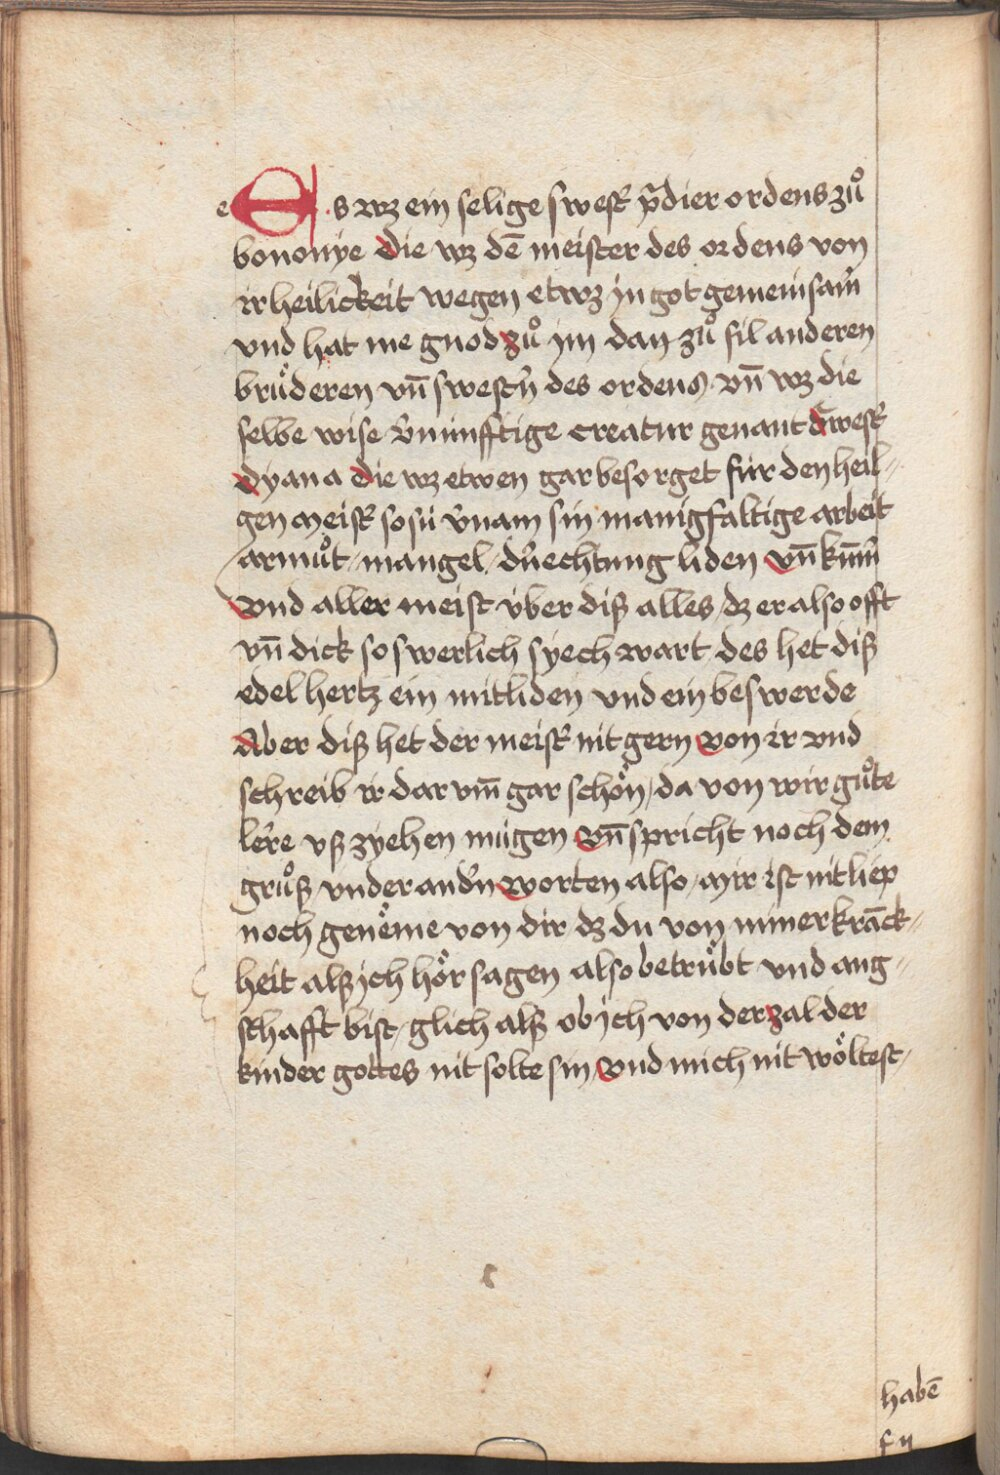 Es wz ein selige swest̄ p̄dier ordens zuͦ
bononÿe die wz dē meister des ordens von
ir heilickeit wegen etwz jn got gemeinsam̄
vnd hat me gnod zuͦ jm dan zuͦ fil anderen
bruͤderen vn̄ swest'n des ordens. vn̄ wz die
selbe wise v'nünfftige creatur genant swest̄
dyana die wz etwen gar besorget für den heil⸗
gen meist̄ so sü v'nam sin manigfaltige arbeit
armuͦt / mangel / dúrechtung liden vn̄ kum̄
vnd aller meist über diß alles / dz er also offt
vn̄ dick so swerlich syech wart / des het diß
edel hertz ein mitliden vnd ein beswerde
Aber diß het der meist̄ nit gern von ir vnd
schreib ir dar vm̄ gar schoͤn / da von wir guͦte
lere vß zyehen mügen vn̄ spricht noch dem
gruͦß / vnder and'n worten also / mir ist nit liep
noch geneͤme von dir dz du von miner kranck⸗
heit alß ich hoͤr sagen also betruͤbt vnd ang⸗
schafft bist / glich alß ob ich von der zal der
kinder gottes nit solte sin vnd mich nit woͤltest /
habē
f ij